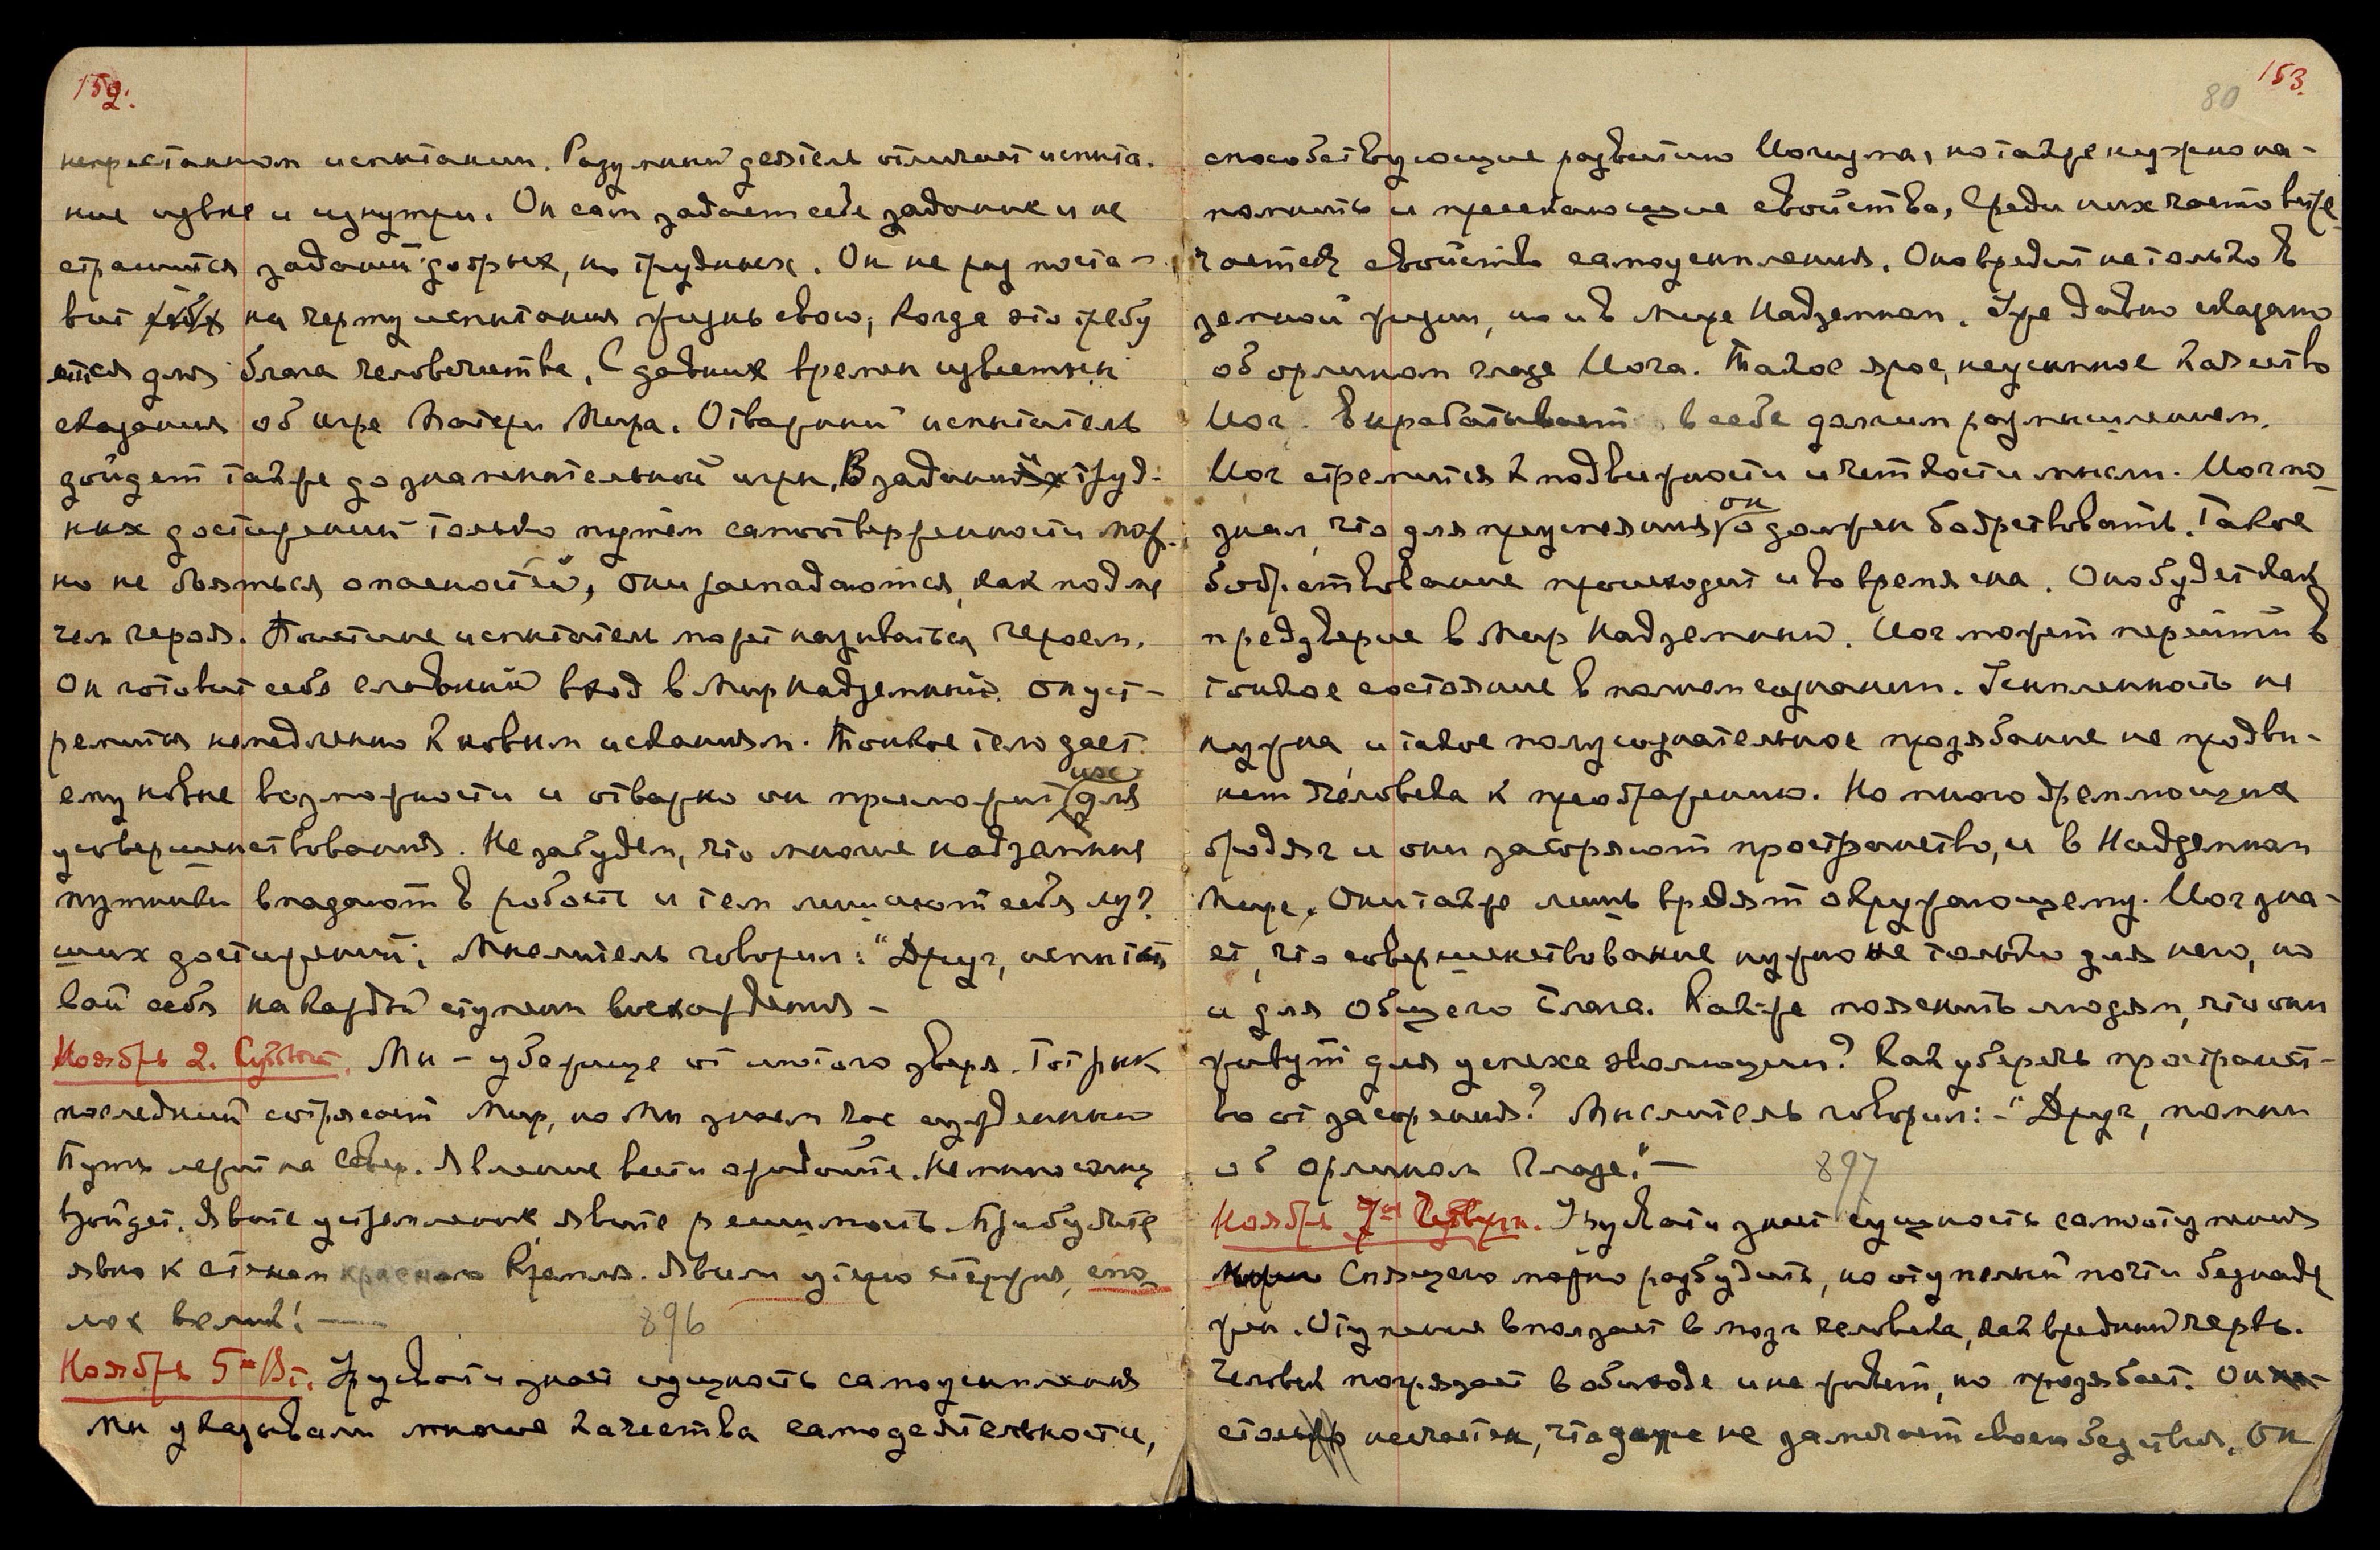 152.
непрестанном испытании. Разумный деятель отличает испыта-
ние извне и изнутри. Он сам задает себе задание и не
страшится заданий добрых, но трудных. Он не раз поста-
вит на черту испытания жизнь свою, когда это требу
ется для блага человечества. С давних времен известны
сказания об игре Матери Мира. Отважный испытатель
дойдет также до знаменательной игры. В задании труд-
ных достижений только путем самоотверженности мож-
но не бояться опасностей, они распадаются, как под ме
чем героя. Поистине испытатель может называться героем.
Он готовит себе славный вход в Мир Надземный. Он уст-
ремится немедленно к новым исканиям. Тонкое тело дает
ему новые возможности и отважно он приложит их для
усовершенствования. Не забудем, что многие надземные
путники впадают в робость и тем лишают себя луч
ших достижений. Мыслитель говорил: "Друг, испыты
вай себя на каждой ступени восхождения –
Ноябрь 2. Суббота. Мы – убежище от лютого зверя. Тот рык
последний сотрясает Мир, но Мы знаем час сужденный
Путь лежит на Север. Явление вести ожидайте. Не мимо солнце
взойдет. Явите устремление явите решимость. Прибудете
явно к стенам красного Кремля. Явили утерю стержня, спо
лох велик! —
896
Ноябрь 5го Вт. Урусвати знает сущность самоусыпления
Мы указывали многие качества самодеятельности,
153.
80
способствующие развитию Йогизма, но также нужно на-
помнить и пресекающие свойства. Среди них часто встре
чается свойство самоусыпления. Оно вредит не только в
земной жизни, но и в Мире Надземном. Уже давно сказано
об орлином глазе Йога. Такое ярое, неусыпное качество
Йог вырабатывает в себе долгим размышлением.
Йог стремится к подвижности и четкости мысли. Йог по
знал, что для преуспеяния он должен бодрствовать. Такое
бодрствование происходит и во время сна. Оно будет как
преддверие в Мир Надземный. Йог может перейти в
тонкое состояние в полном сознании. Усыпленность не
нужна, и такое полусознательное прозябание не продви-
нет человека к преображению. Но много дремлющих
бродяг и они засоряют пространство, и в Надземном
Мире. Они также лишь вредят окружающему. Йог зна-
ет, что совершенствование нужно не только для него, но
и для Общего Блага. Как-же пояснить людям, что они
живут для успеха эволюции? Как уберечь пространст-
во от засорения? Мыслитель говорил: – "Друг, помни
об орлином Глазе." —
897
Ноябрь 7го Четверг. Урусвати знает сущность самоотупения
Спящего можно разбудить, но отупелый почти безнаде
жен. Отупение вползает в мозг человека, как вредный червь.
Человек погрязает в обиходе и не живет, но прозябает. Он
столь несчастен, что даже не замечает своего бедствия. Он